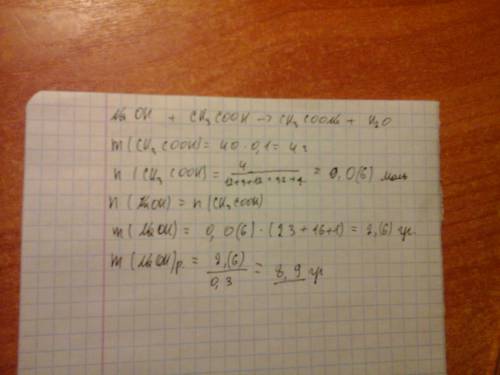 NaOH + CH3COOH → CH3COONa + H2O
m(CH3COOH) = 40 · 0,1 = 4 г
n(CH3COOH) = 4 / = 0,0(6) моль
n(NaOH) = n(CH3COOH)
m(NaOH) = 0,0(6) · (23+16+1) = 2,(6) гр.
m(NaOH)р. = 2,(6) / 0,3 = 8,9 гр